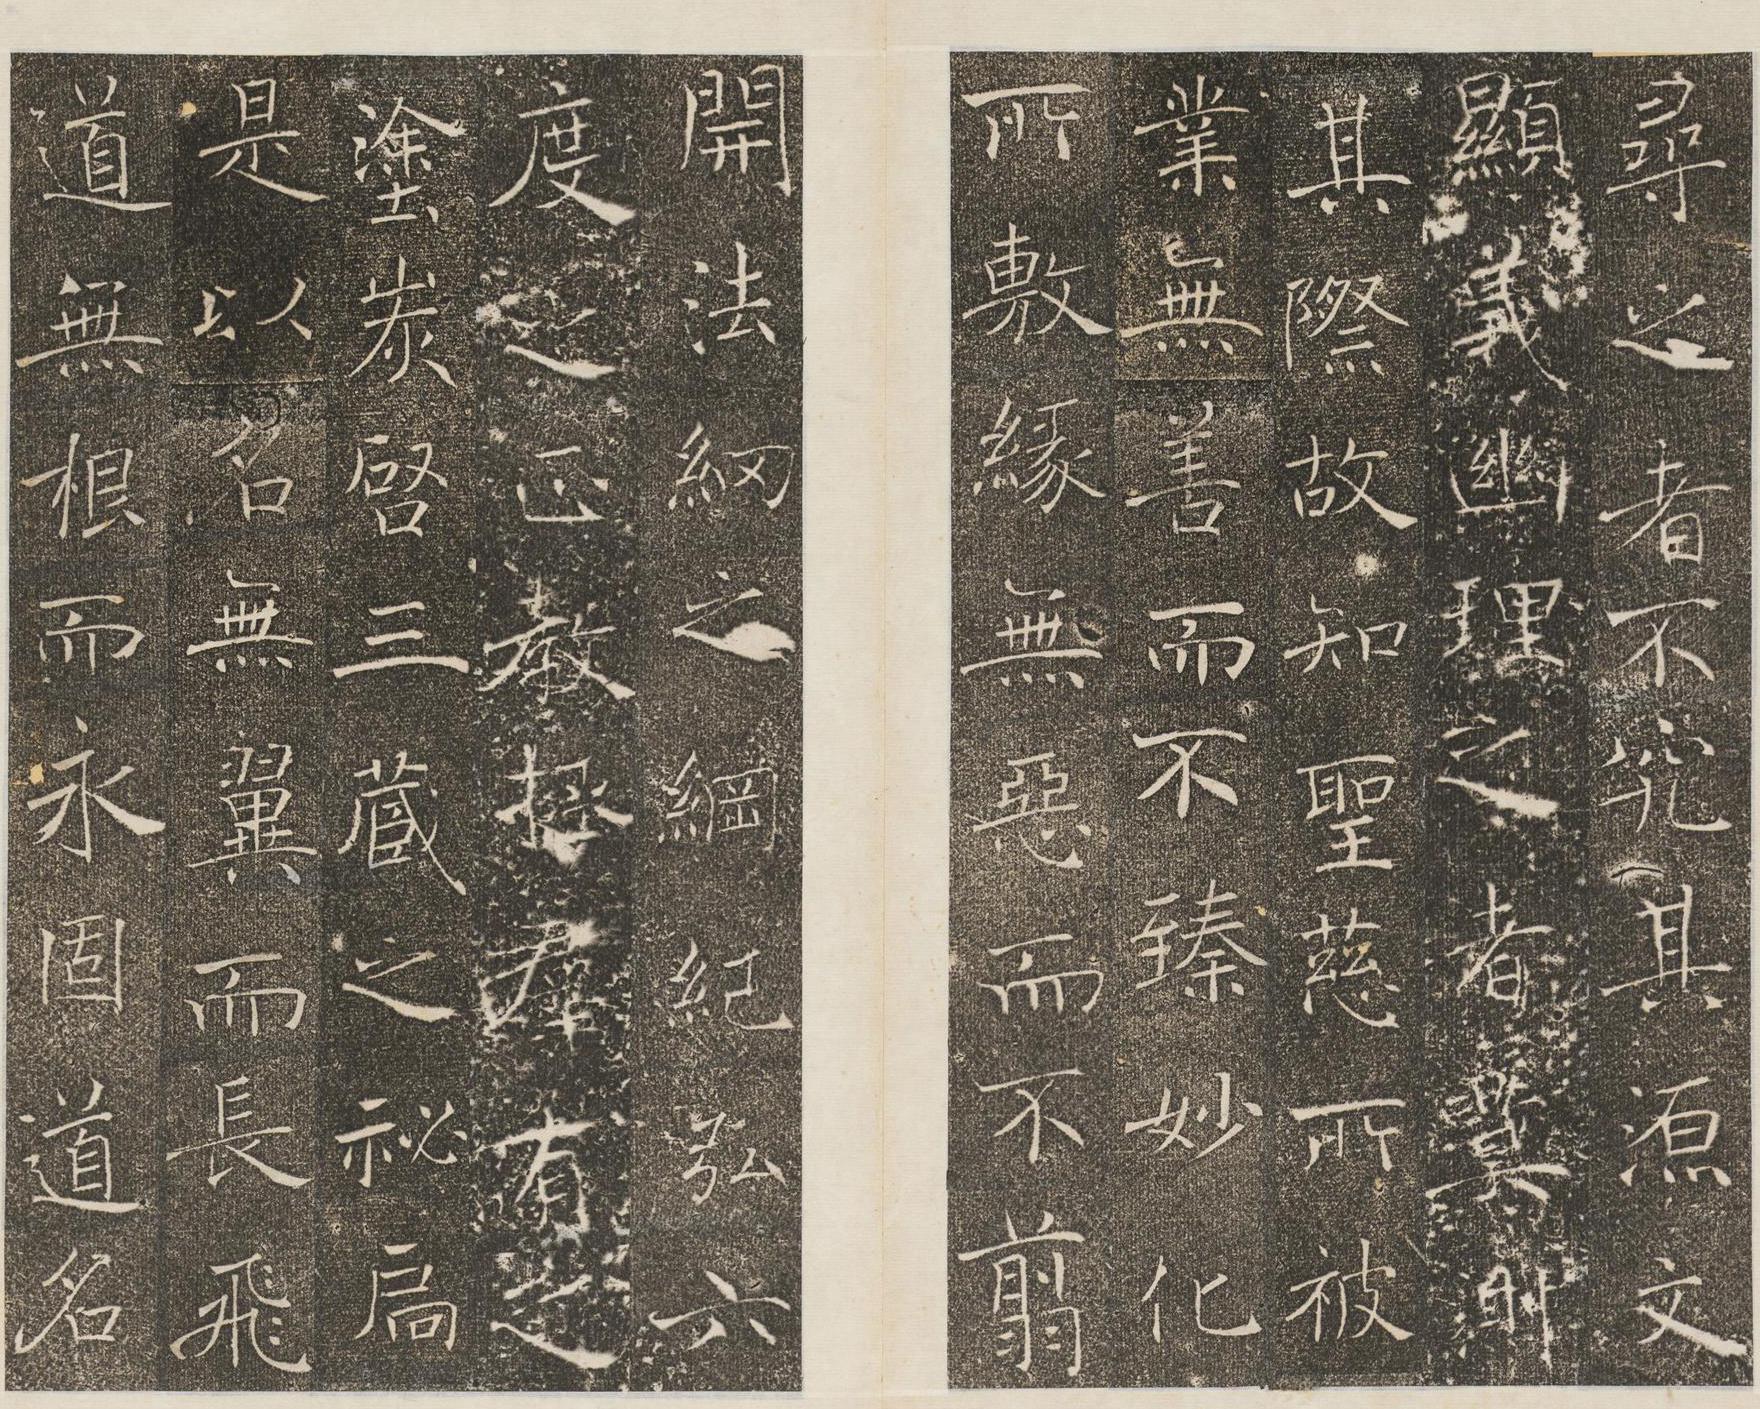 尋之者不究其源文
顯義幽理之者莫測
其際故知聖慈所被
業無善而不臻妙化
所敷緣無惡而不翦
開法網之綱紀弘六
度之正教拯羣有之
塗炭啓三藏之祕扃
是以名無翼而長飛
道無根而永固道名